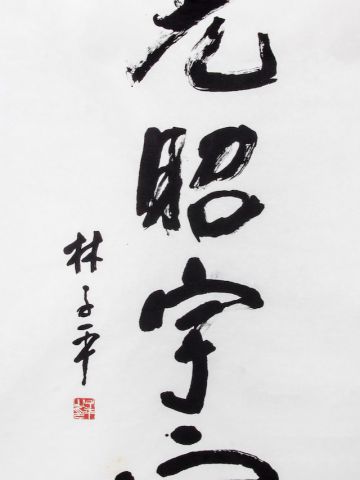 光昭宇
林子平